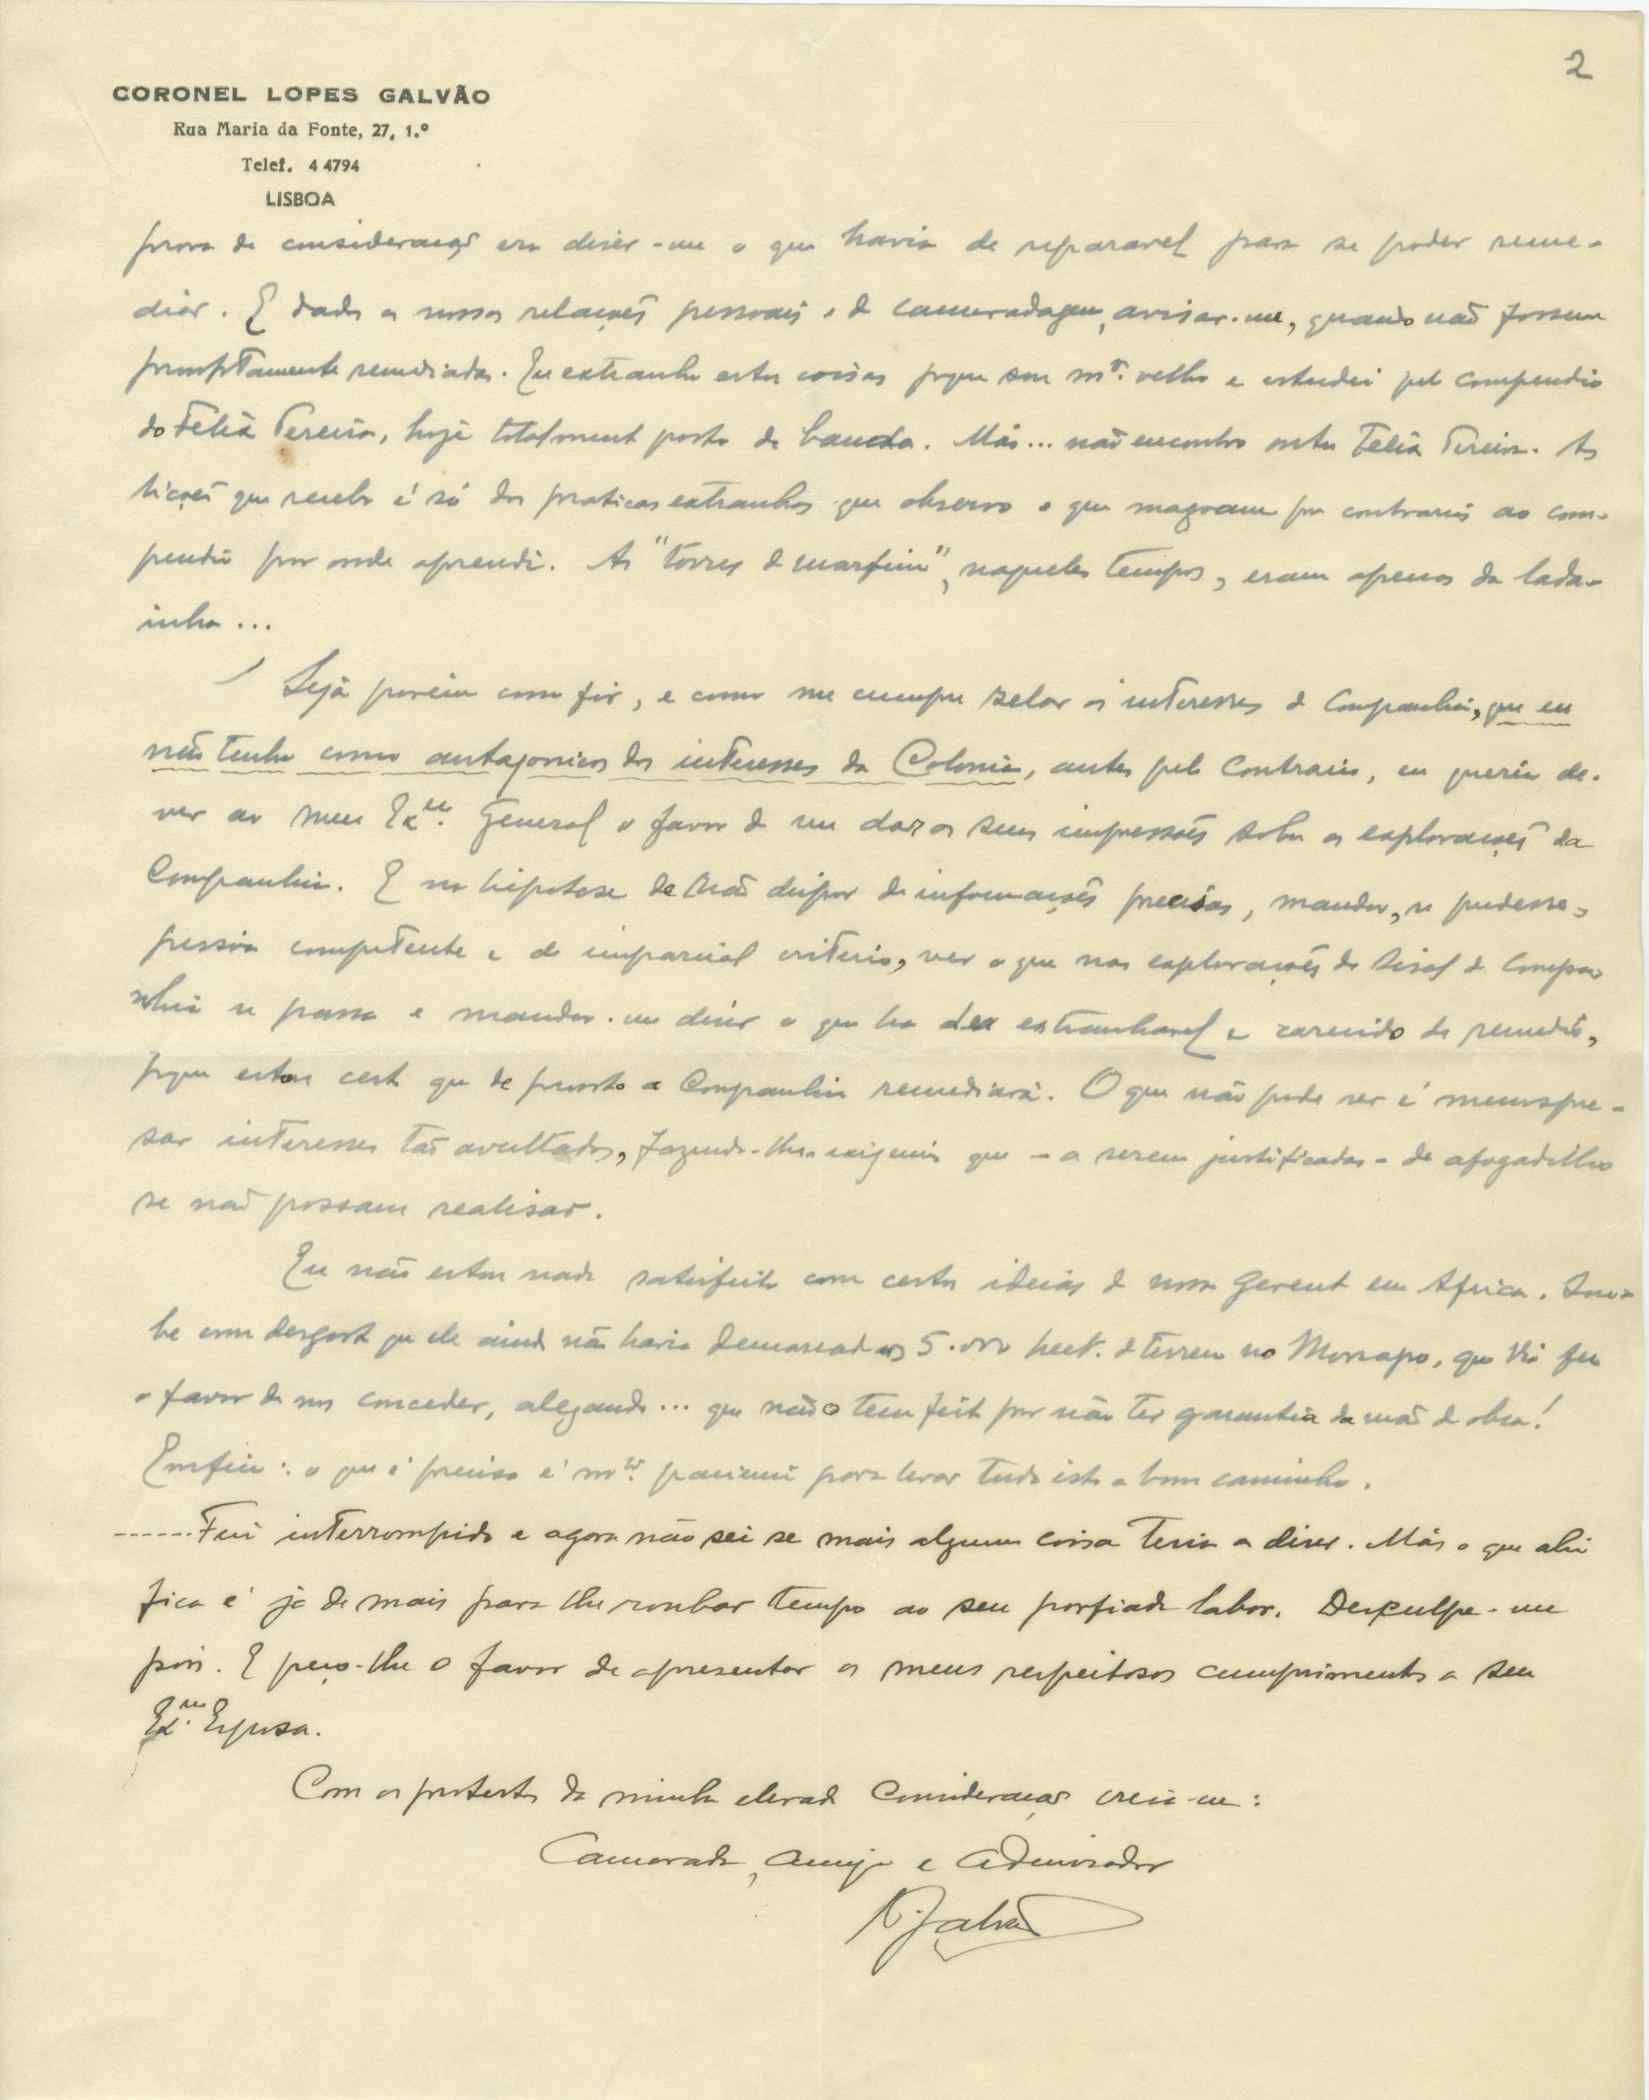 2
CORONEL LOPES GALVÃO
Rua Maria da Fonte, 27, 1.º
Telef. 4 4794
LISBOA
prova de consideração era dizer-me o que havia de reparavel para se poder reme-
diar. E dada as nossas relações pessoais e de camaradagem, avisar-me, quando não fossem
promptamente remediadas. Eu extranho estas coisas porque sou mto. velho e estudei pelo compendio
do Felix Pereira, hoje totalmente posto de banda. Mas... não encontro outro Felix Pereira. As
lições que recebo é só das praticas extranhas que observo e que magoam por contrarias ao com-
pendio por onde aprendi. As "torres de marfim", naqueles tempos, eram apenas da lada-
inha...
Seja porém como fôr, e como me cumpre zelar os interesses da Companhia, que eu
não tenho como antagonicos dos interesses da Colonia, antes pelo contrario, eu queria de-
ver ao meu Exmo. General o favor de me dar as suas impressões sobre as explorações da
Companhia. E na hipotese de não dispor de informações precisas, mandar, se pudesse,
pessoa competente e de imparcial criterio, ver o que nas explorações de sisal da Compa-
nhia se passa e mandar-me dizer o que ha de extranhavel e carecido de remedio,
porque estou certo que de pronto a Companhia remediará. O que não pode ser é menospre-
sar interesses tão avultados, fazendo-lhes exigencias que - a serem justificadas - de afogadilho
se não possam realisar.
Eu não estou nada satisfeito com certas ideias do nosso Gerente em Africa. Sou-
be com desgosto que ele ainda não havia demarcado os 5.000 hect. de terreno no Monapo, que fez
o favor de nos conceder, alegando... que não o tem feito por não ter garantia da mão d obra!
Emfim: o que é preciso é mta. paciencia para levar tudo isto a bom caminho.
------Fui interrompido e agora não sei se mais alguma coisa teria a dizer. Mas o que ahi
fica é já de mais para lhe roubar tempo ao seu porfiado labor. Desculpe-me
pois. E peço-lhe o favor de apresentar os meus respeitosos cumprimentos a sua
Exma. Esposa.
Com os protestos da minha elevada consideração creia-me:
Camarada, amigo e admirador
Galvão